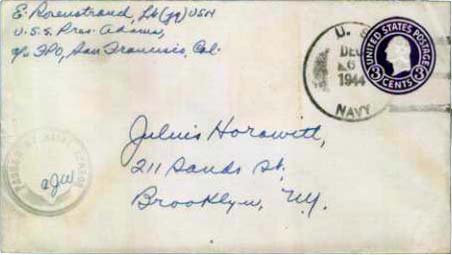 E. Rosenstrand, Lt(jg) USN
U.S.S. Pres. Adams,
c/o FPO, San Francisco, Cal.
U. S.
DEC
1944
NAVY
UNITED STATES POSTAGE
3 CENTS 3
Julius Horowitt,
211 Sands St.
Brooklyn, NY.
PASSED BY NAVAL CENSOR